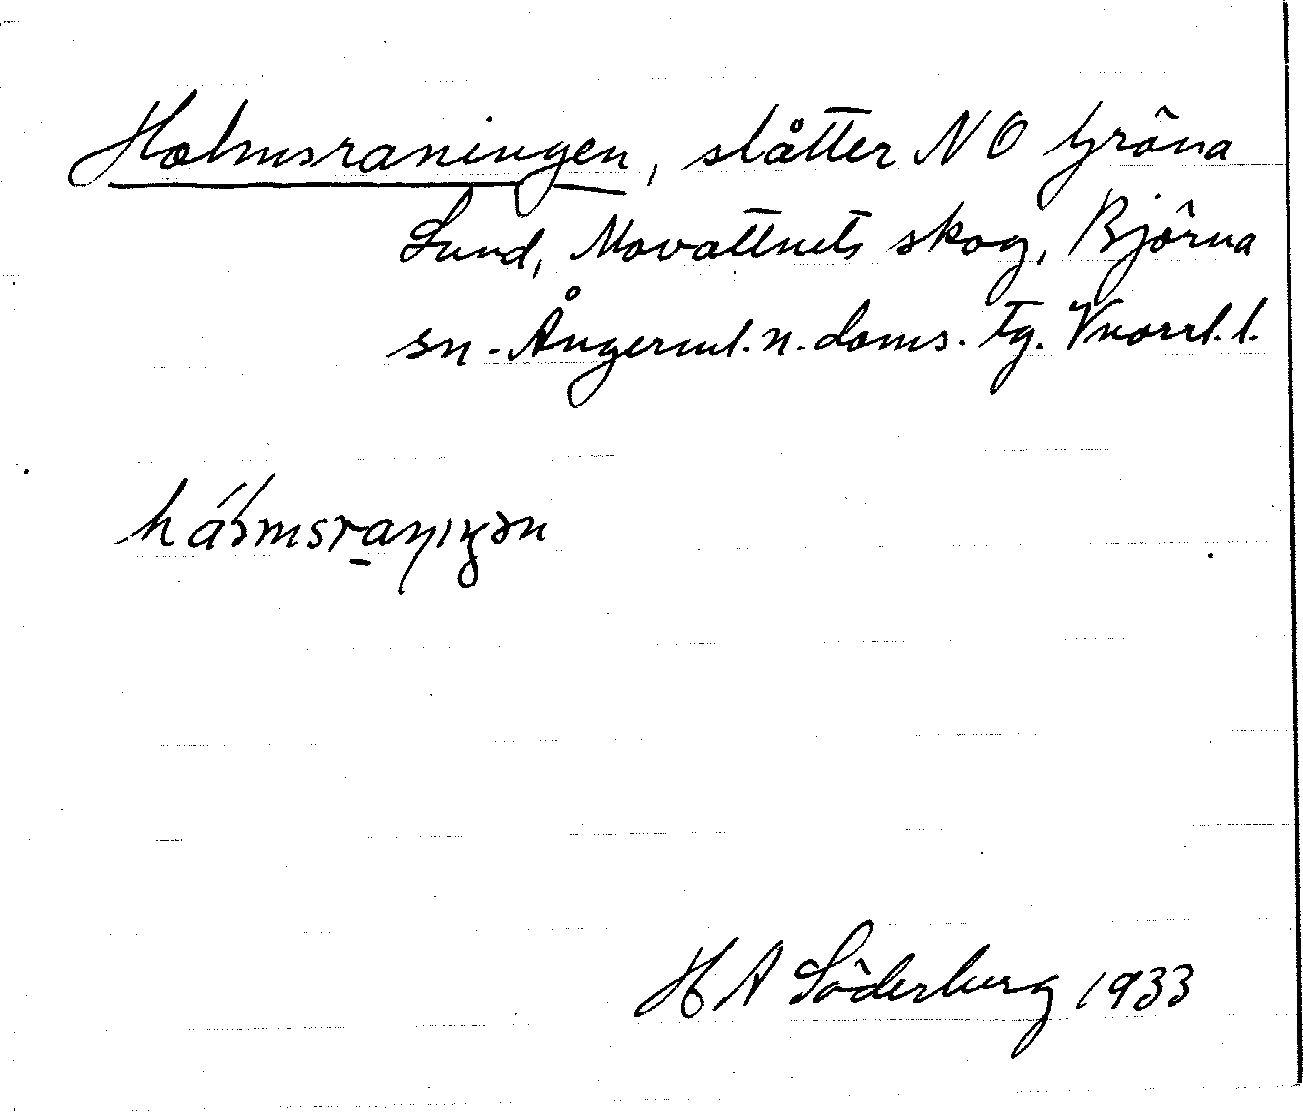 Holmsraningen, slåtter NO Gröna
Lund, Movattnets skog, Björna
sn. Ångerml. n. doms. tg. Vnorrl. l.
H A Söderberg 1933